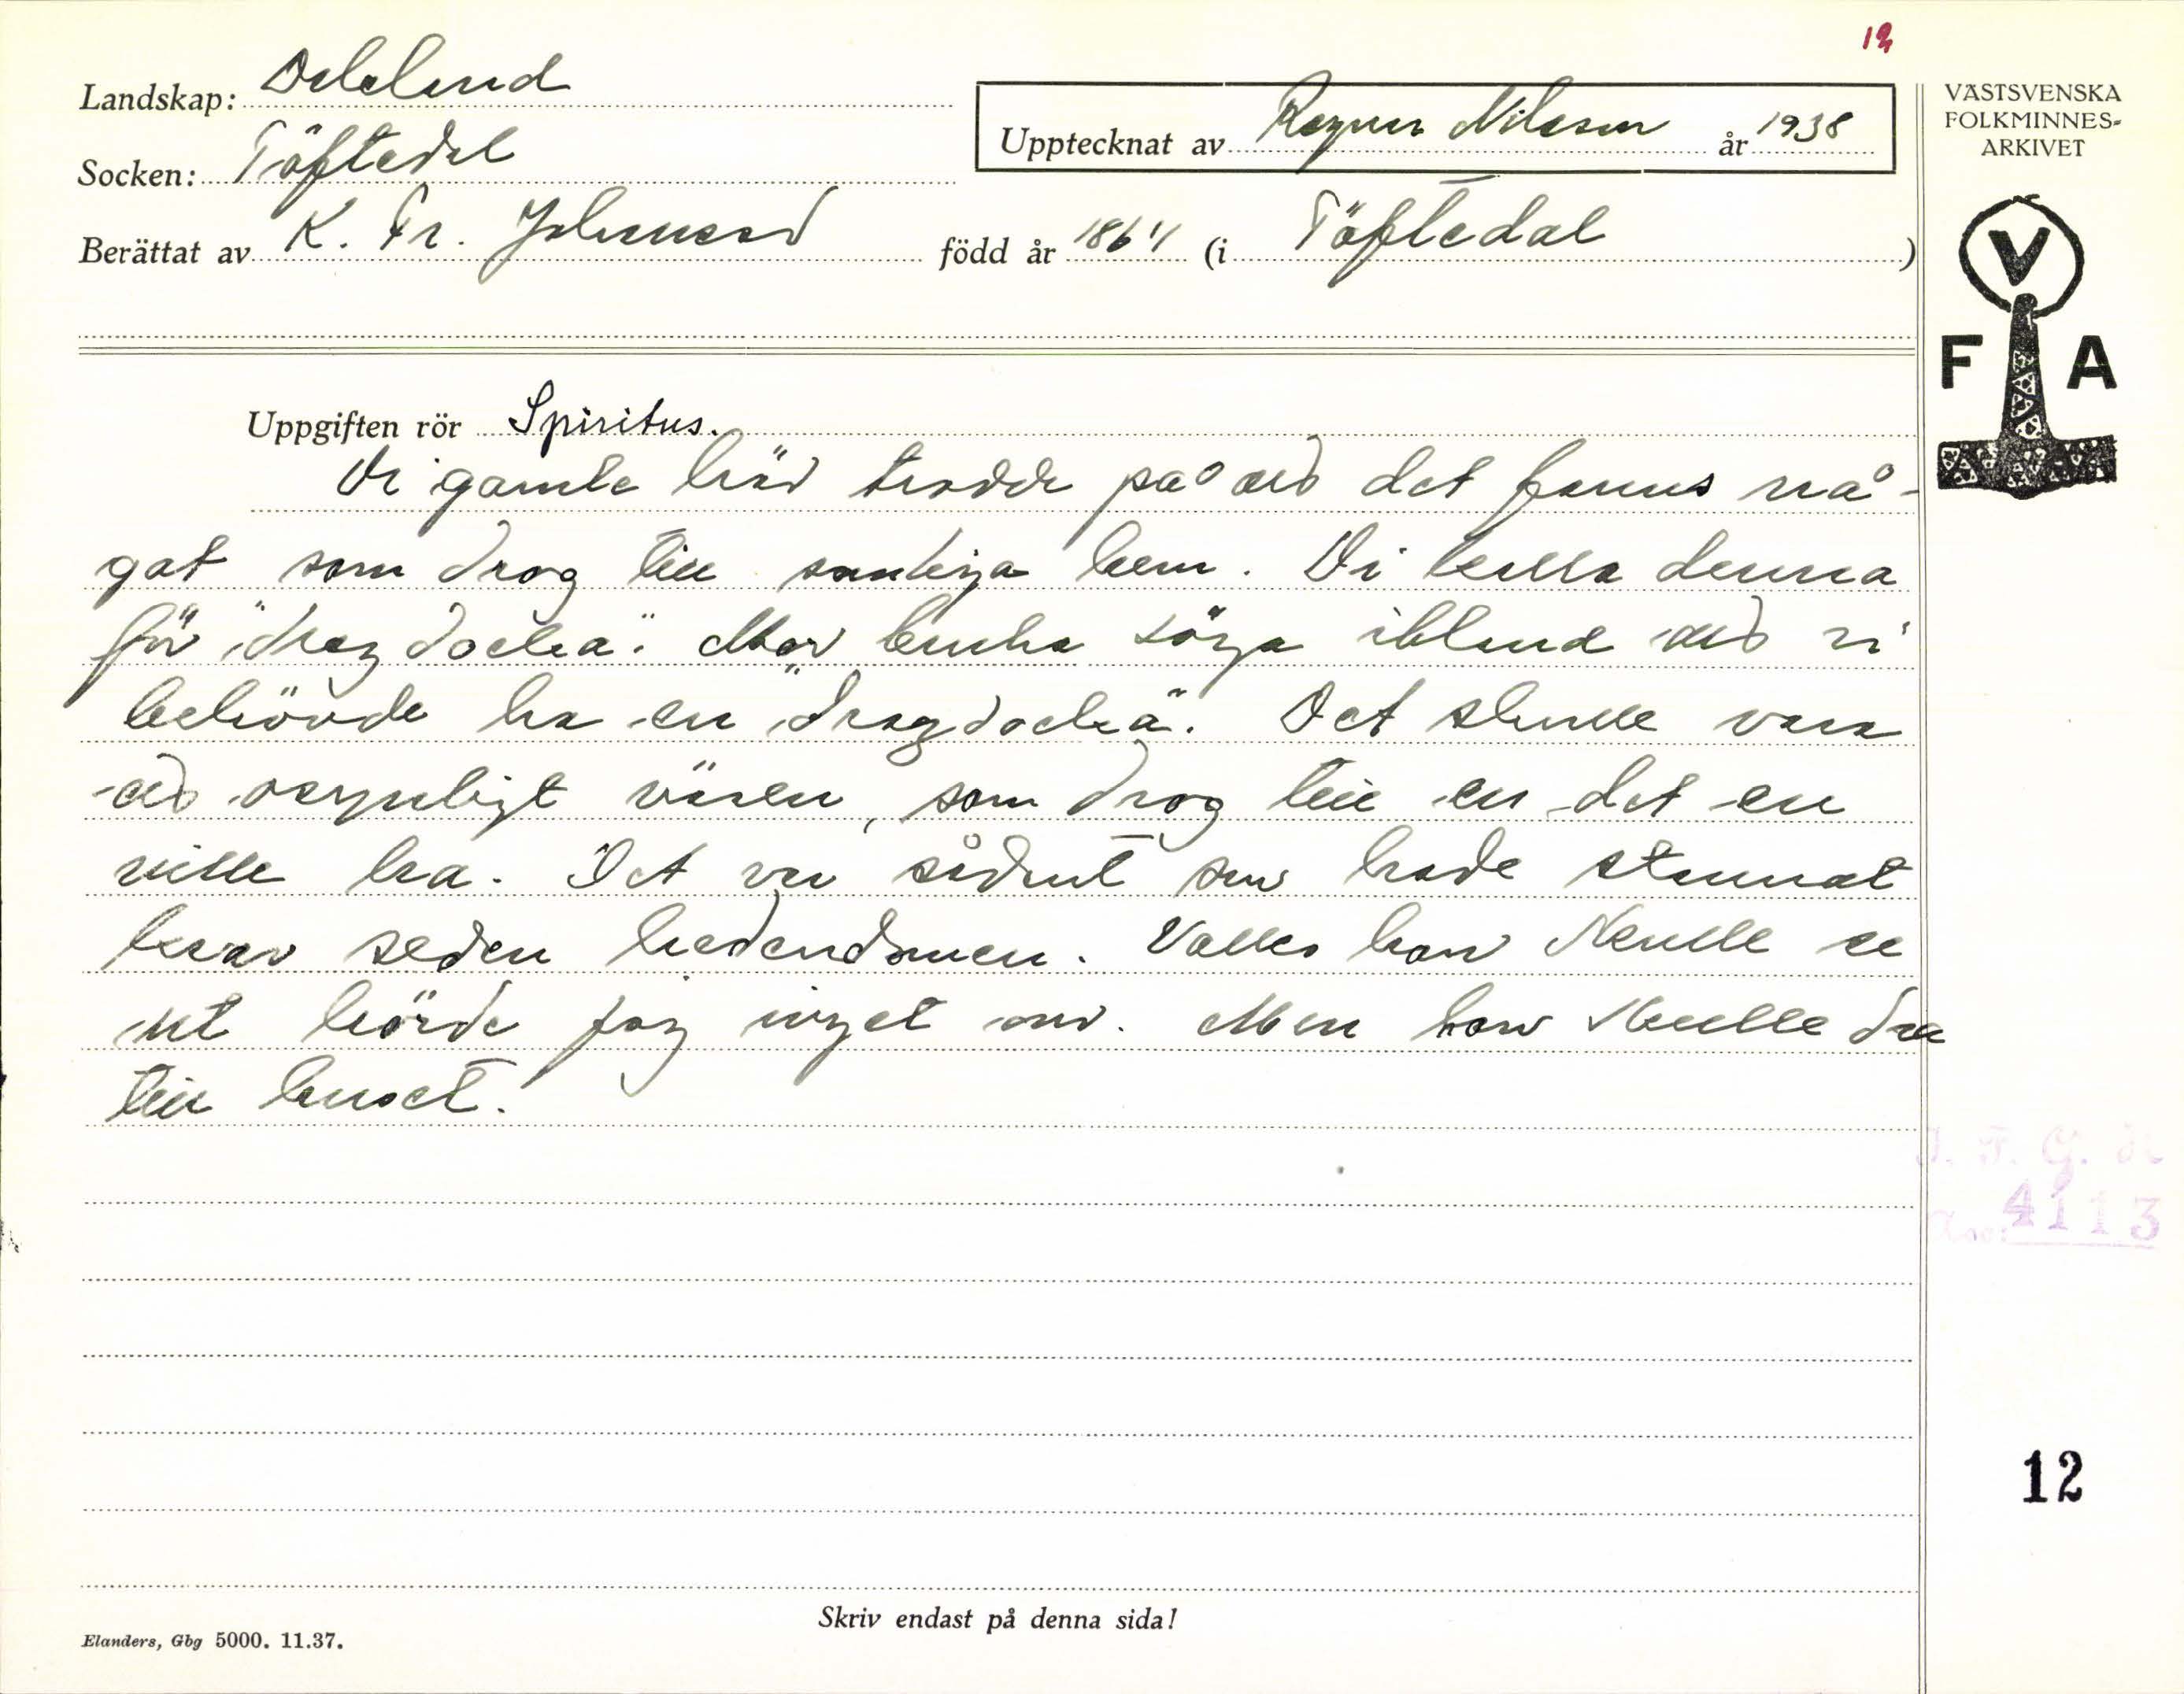 12
Landskap: Dalsland
Upptecknat av Ragnar Nilsson år 1938
Socken: Töftedal
Berättat av K. Fr. Johansson född år 1864 (i Töftedal)
VÄSTSVENSKA
FOLKMINNES-
ARKIVET
V
F A
Uppgiften rör Spiritus.
Di gamle här trodde på att det fanns nå-
got som drog till somliga hem. Di kalla denna
för "dragdocka". Mor bruka säga ibland att vi
behövde ha en "dragdocka". Det skulle vara
ett osynligt väsen, som drog till en det en
ville ha. Det var sådant som hade stannat
kvar sedan hedendomen. Valles han skulle se
ut hörde jag inget om. Men han skulle dra
till huset.
I. F. G. nr
Acc. 4113
12
Skriv endast på denna sida!
Elanders, Gbg 5000. 11.37.